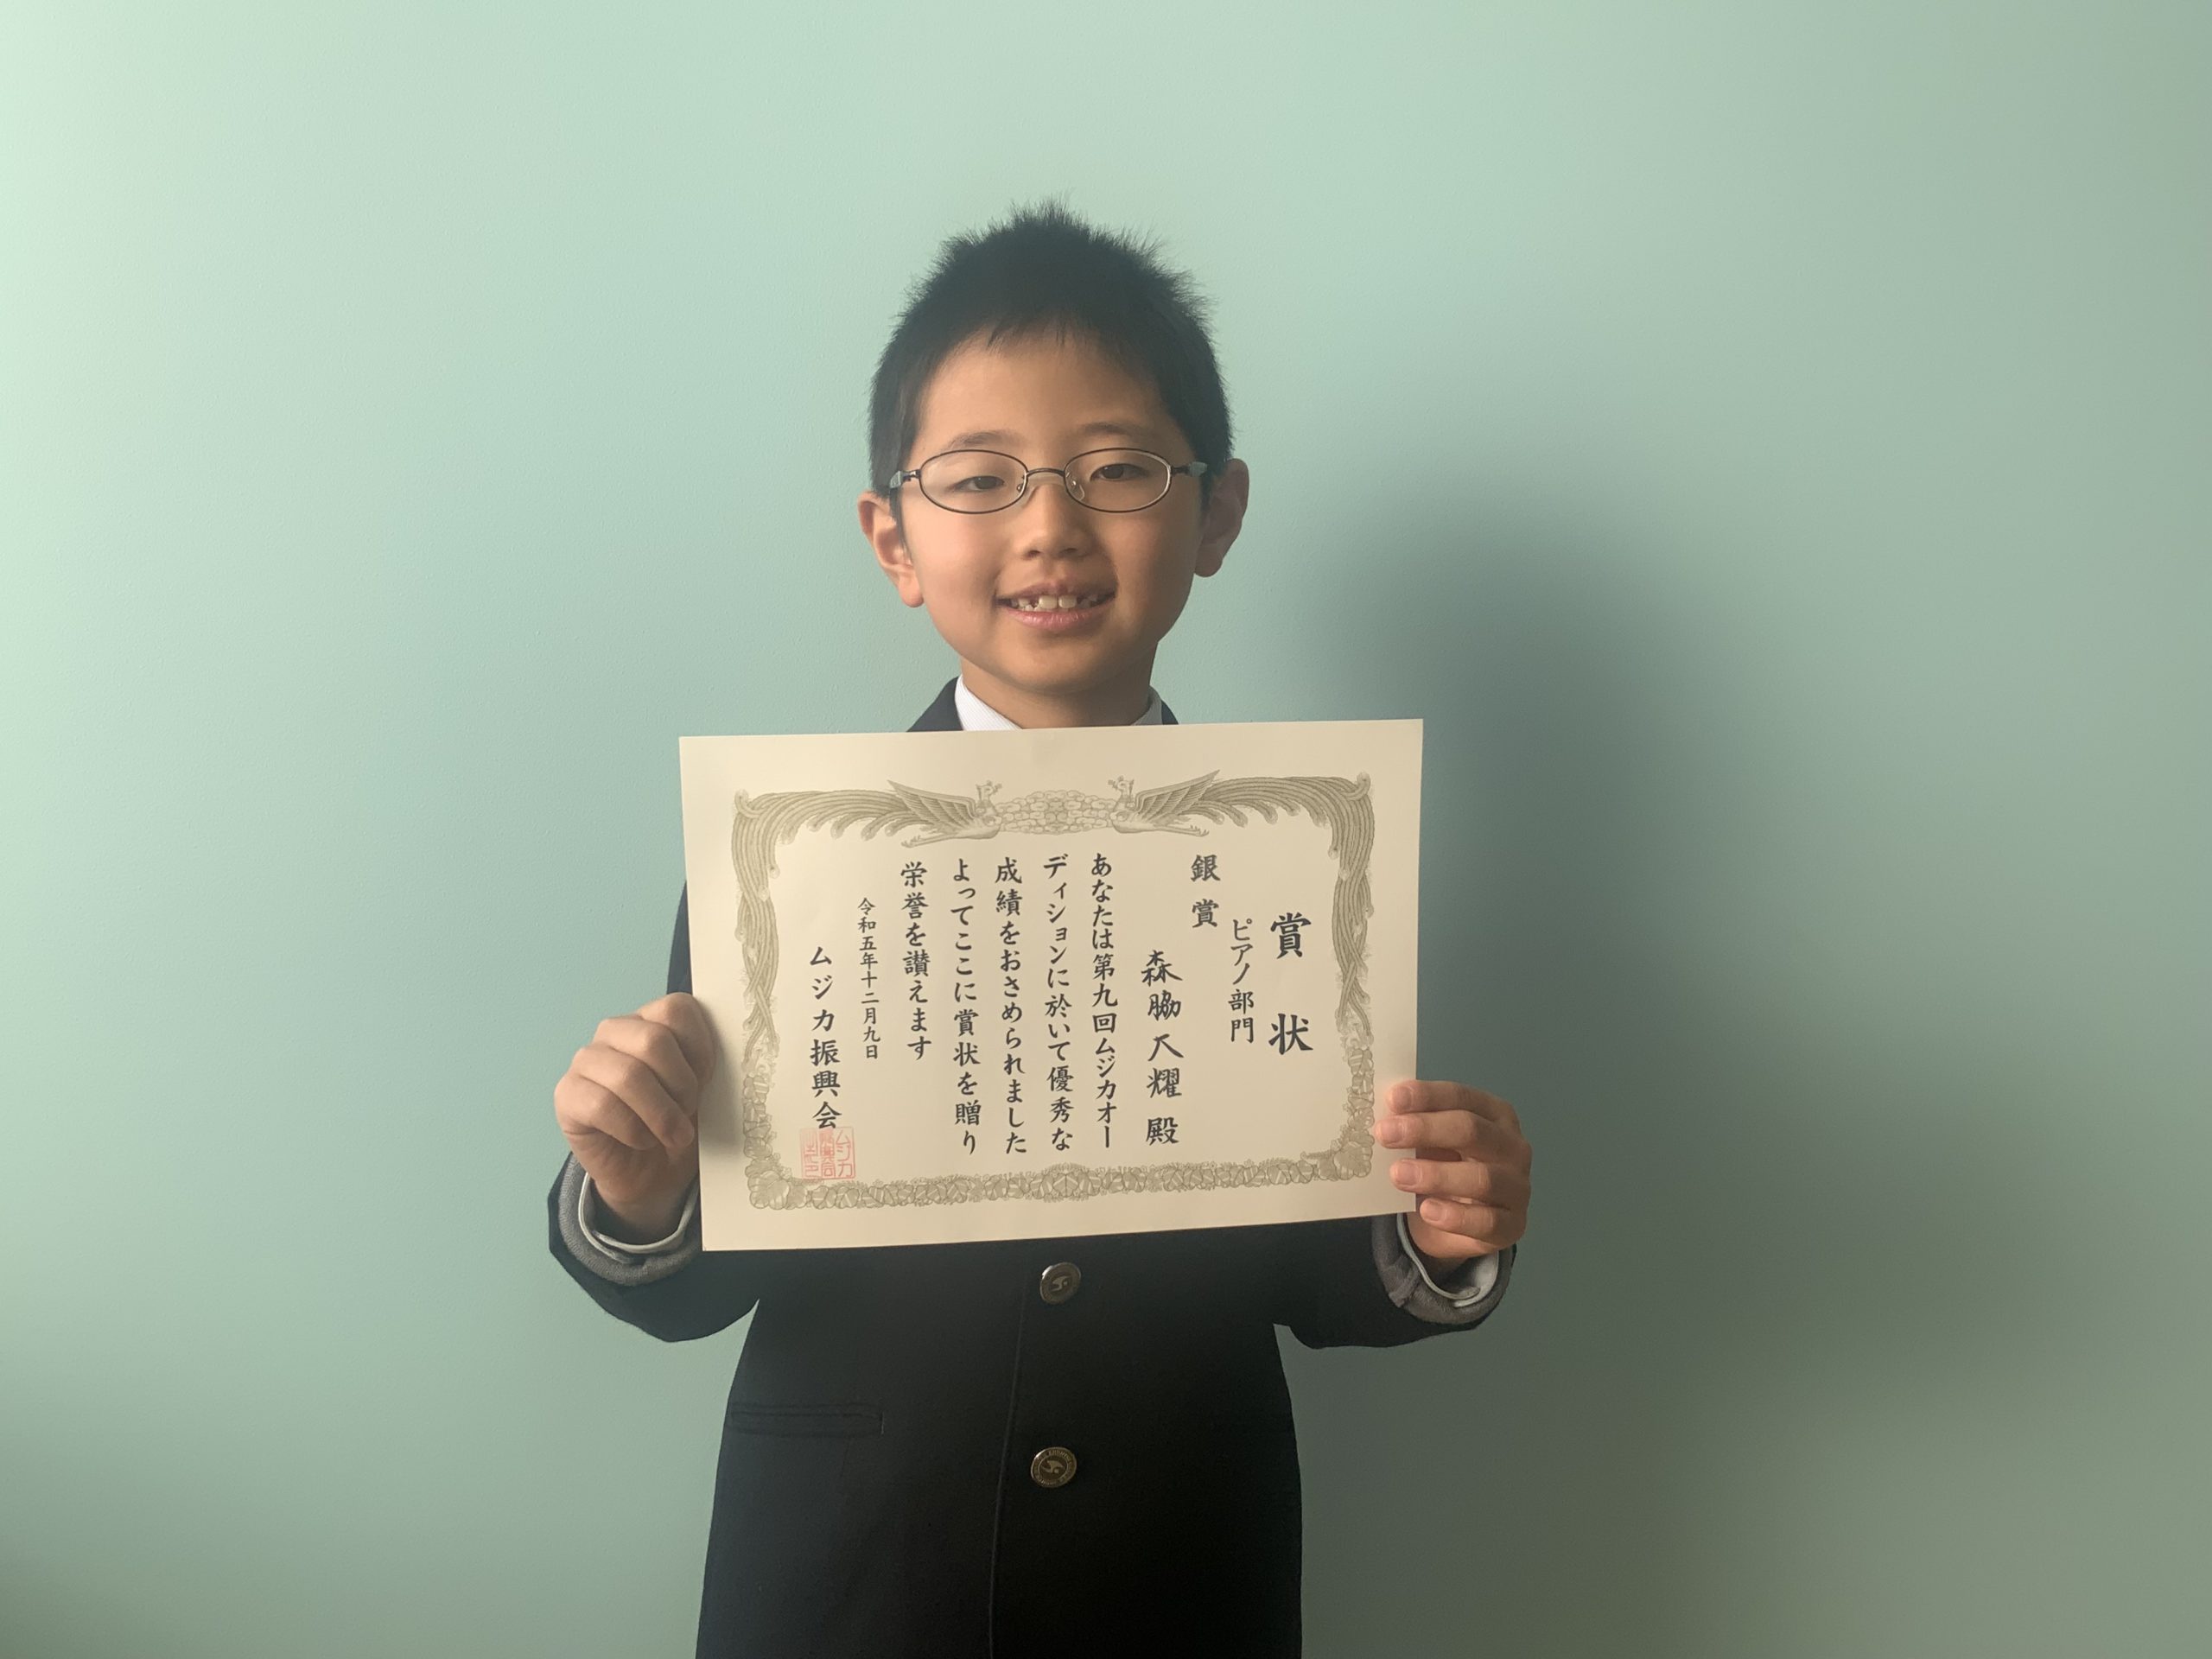 賞状
ピアノ部門
銀賞
森脇大耀殿
あなたは第九回ムジカオー
ディションに於いて優秀な
成績をおさめられました
よってここに賞状を贈り
栄誉を讃えます
令和五年十二月九日
ムジカ振興会